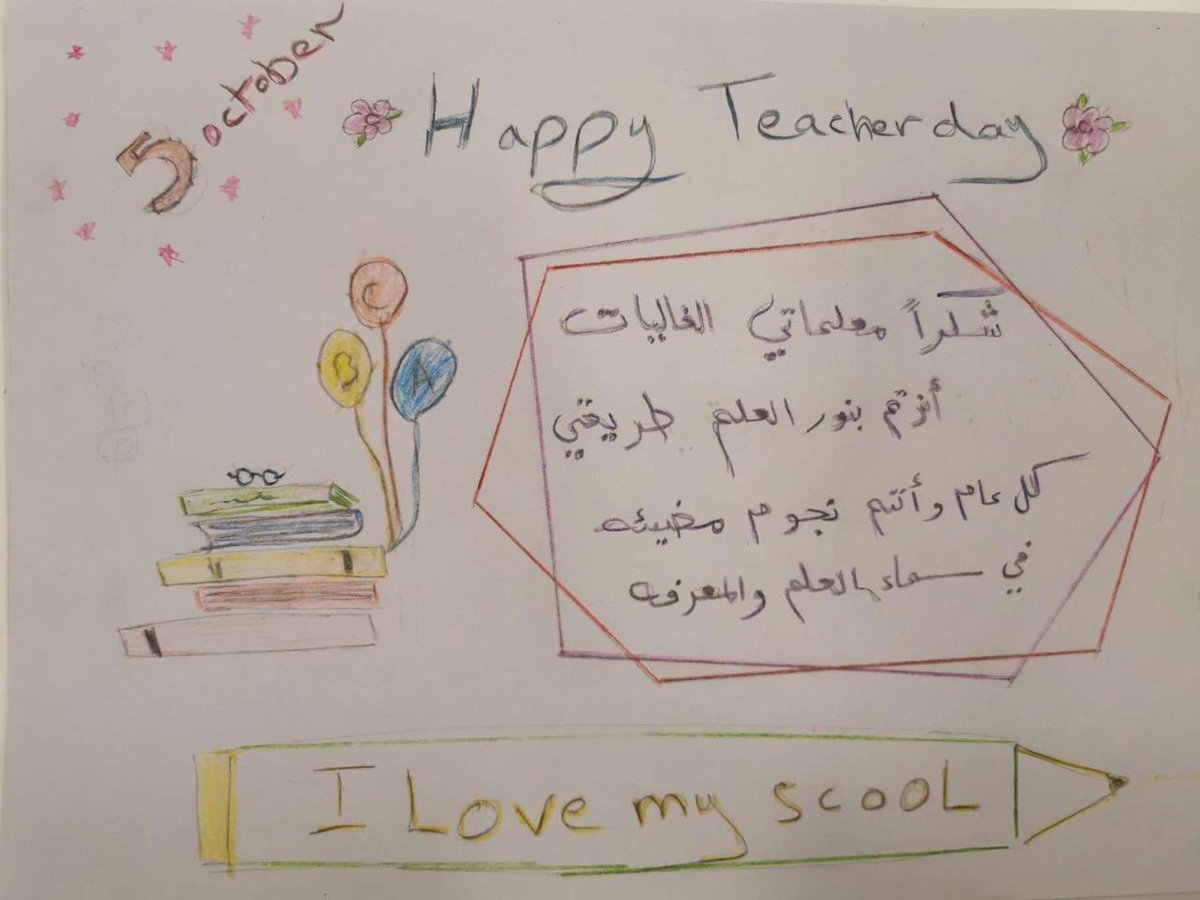 5 october
Happy Teacher day
C
B A
شكراً معلماتي الغاليات
أنرتم بنور العلم طريقتي
كل عام وأنتم نجوم مضيئه
في سماء العلم والمعرفه
I Love my scool